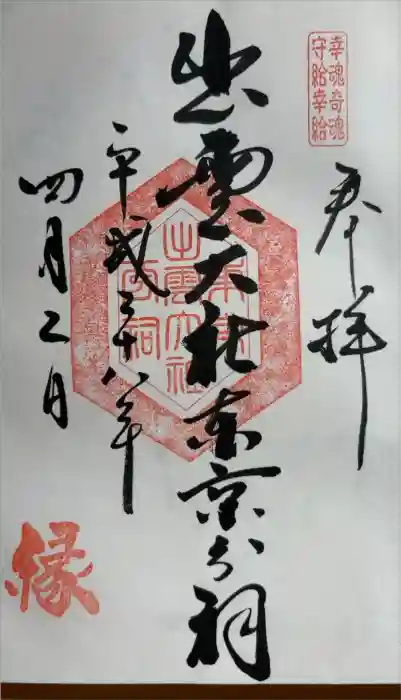 幸魂奇魂
守給幸給
奉拝
出雲大社東京分祠
平成二十八年
四月二日
出雲大社
東京分祠
縁